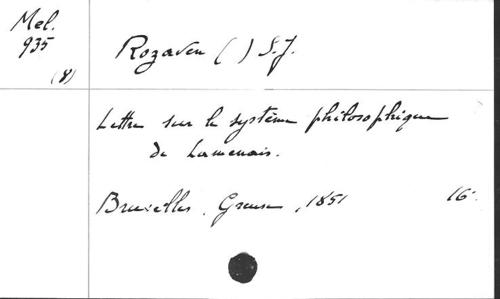 Mel.
935
(8)
Rozaven ( ) S.J.
Lettre sur le système philosophique
de Lamenais.
Bruxelles, Greuse, 1851 16°.